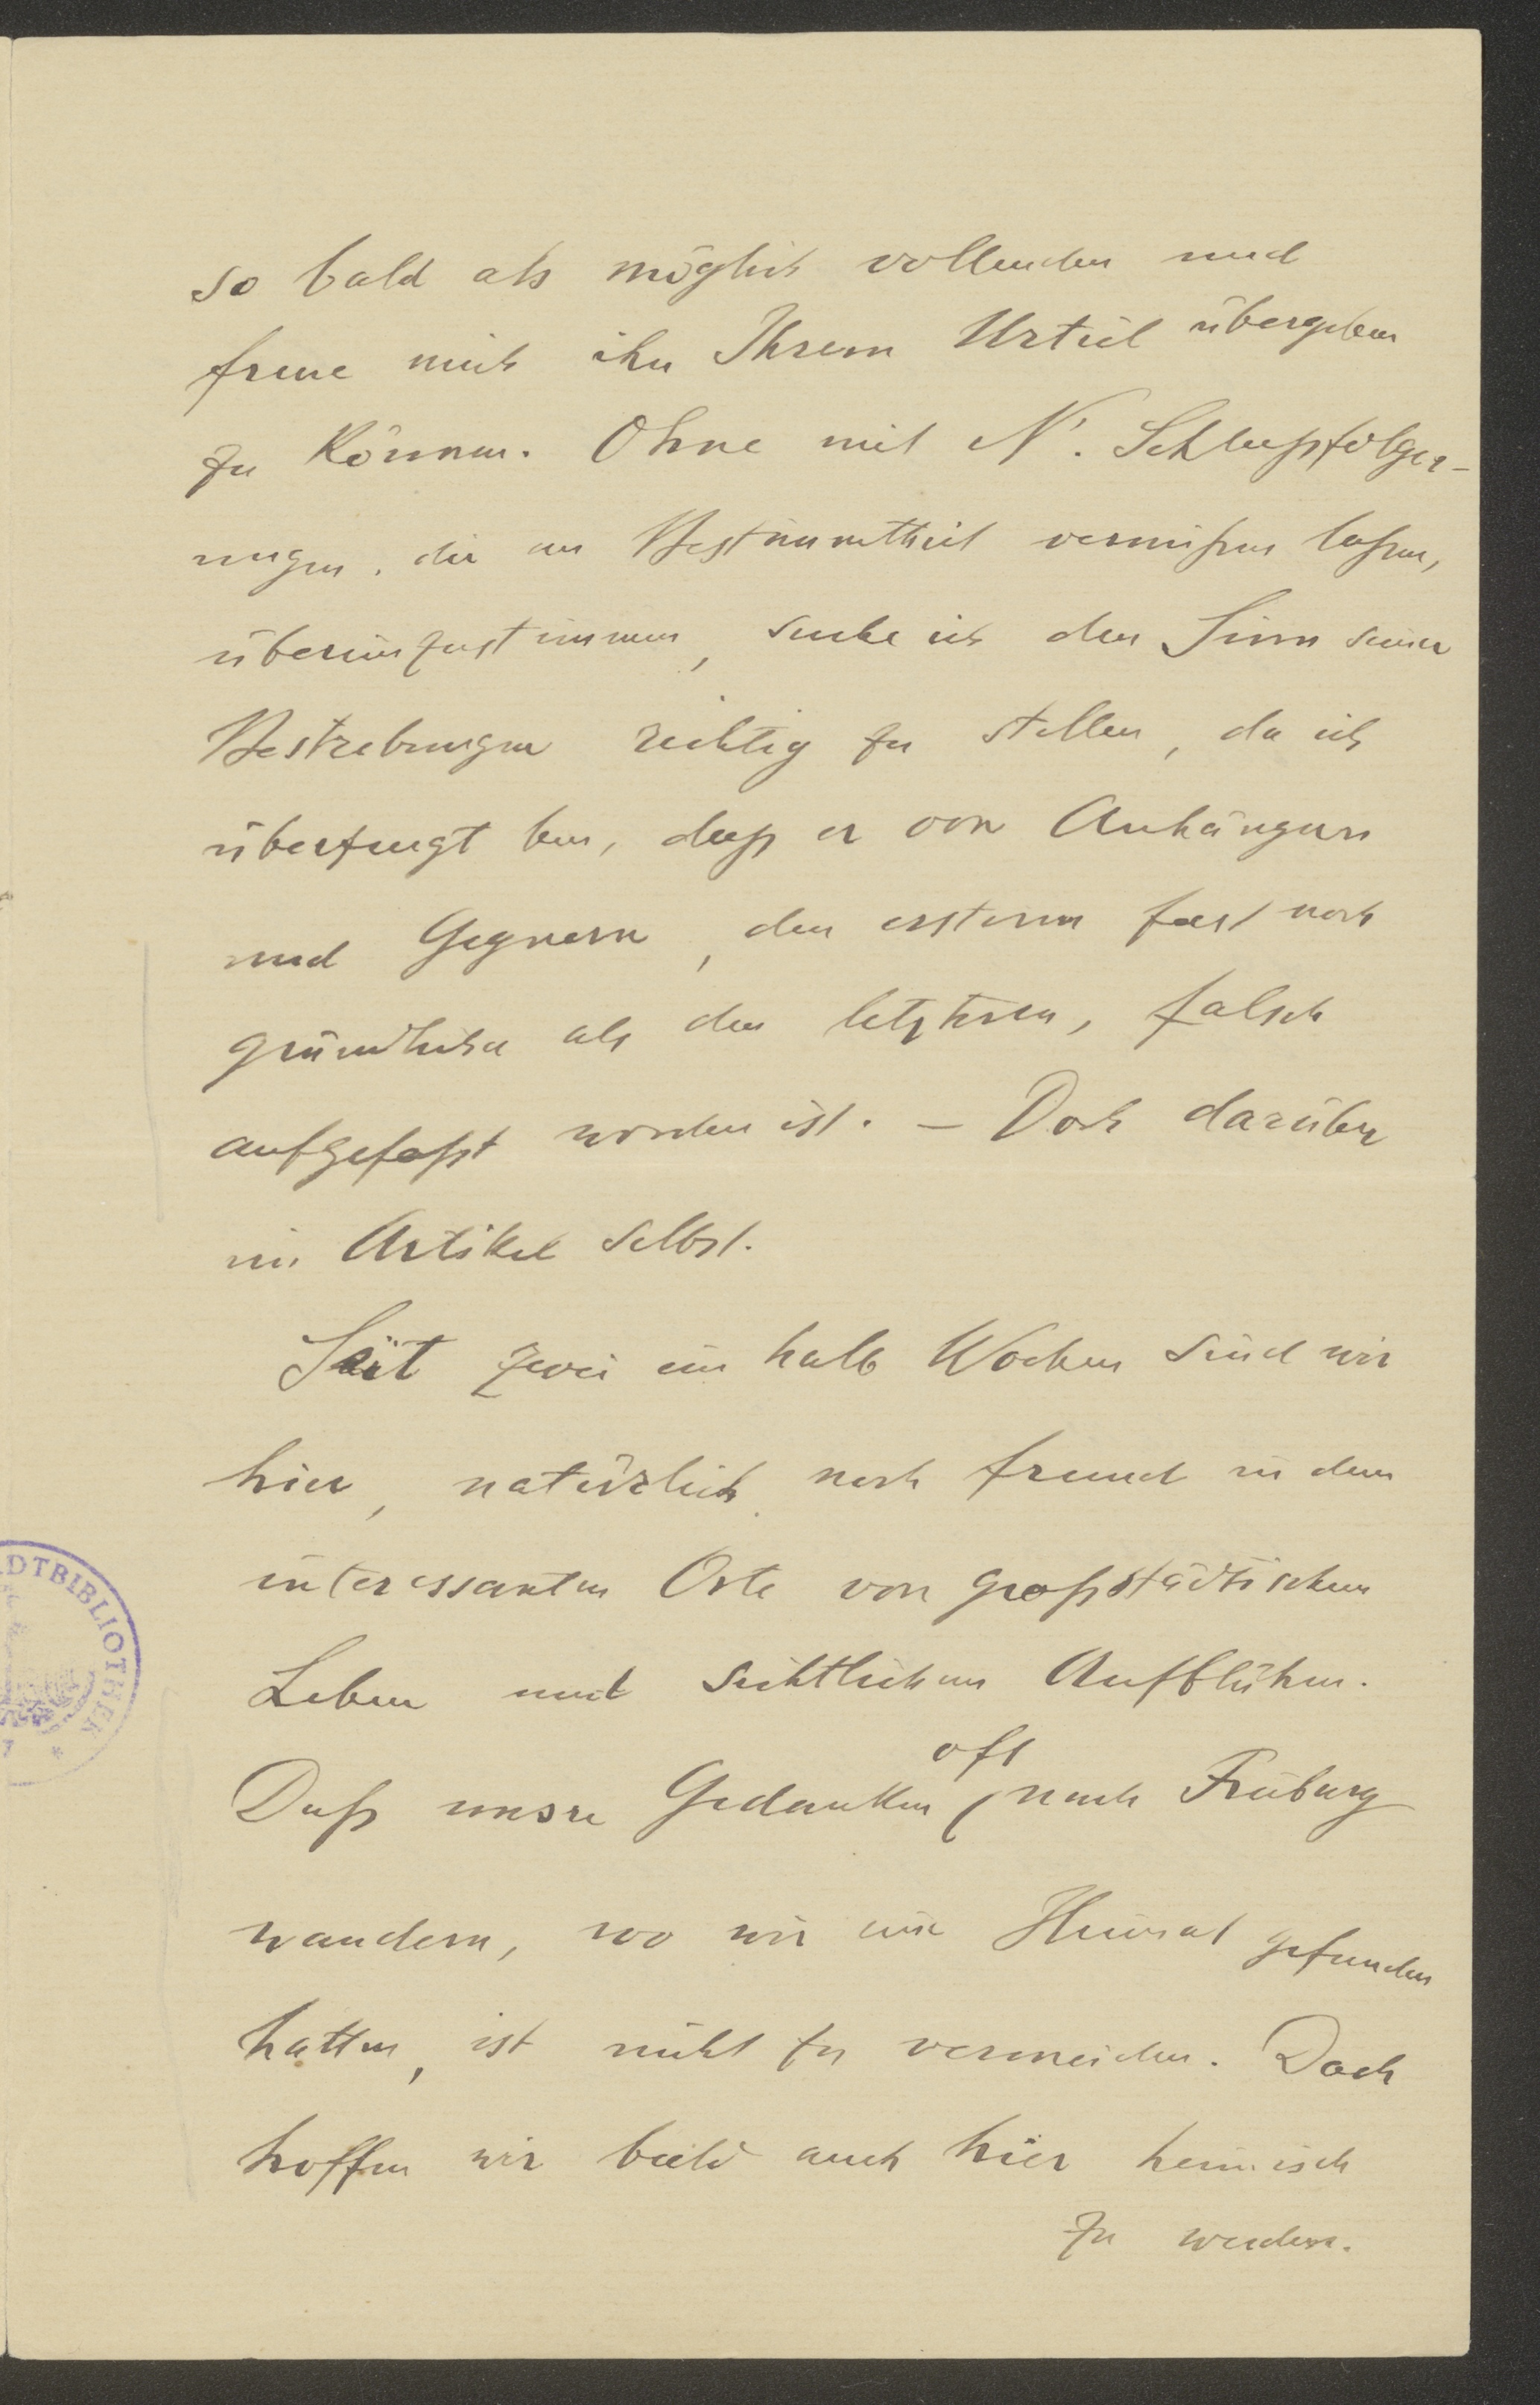 so bald als möglich vollenden und
freue mich ihn Ihrem Urteil übergeben
zu können. Ohne mit N. Schlußfolger-
ungen, die an Bestimmtheit vermißen laßen,
übereinzustimmen, suche ich den Sinn seiner
Bestrebungen richtig zu stellen, da ich
überzeugt bin, daß er von Anhängern
und Gegnern, den ersteren fast noch
gründlicher als den letzteren, falsch
aufgefaßt worden ist. – Doch darüber
im Artikel selbst.
Seit zwei ein halb Wochen sind wir
hier, natürlich noch fremd in dem
interessanten Orte von großstädtischem
Leben und sichtlichem Aufblühen.
Daß unsre Gedanken oft nach Freiburg
wandern, wo wir eine Heimat gefunden
hatten, ist nicht zu vermeiden. Doch
hoffen wir bald auch hier heimisch
zu werden.
DTBIBLIOTHEK